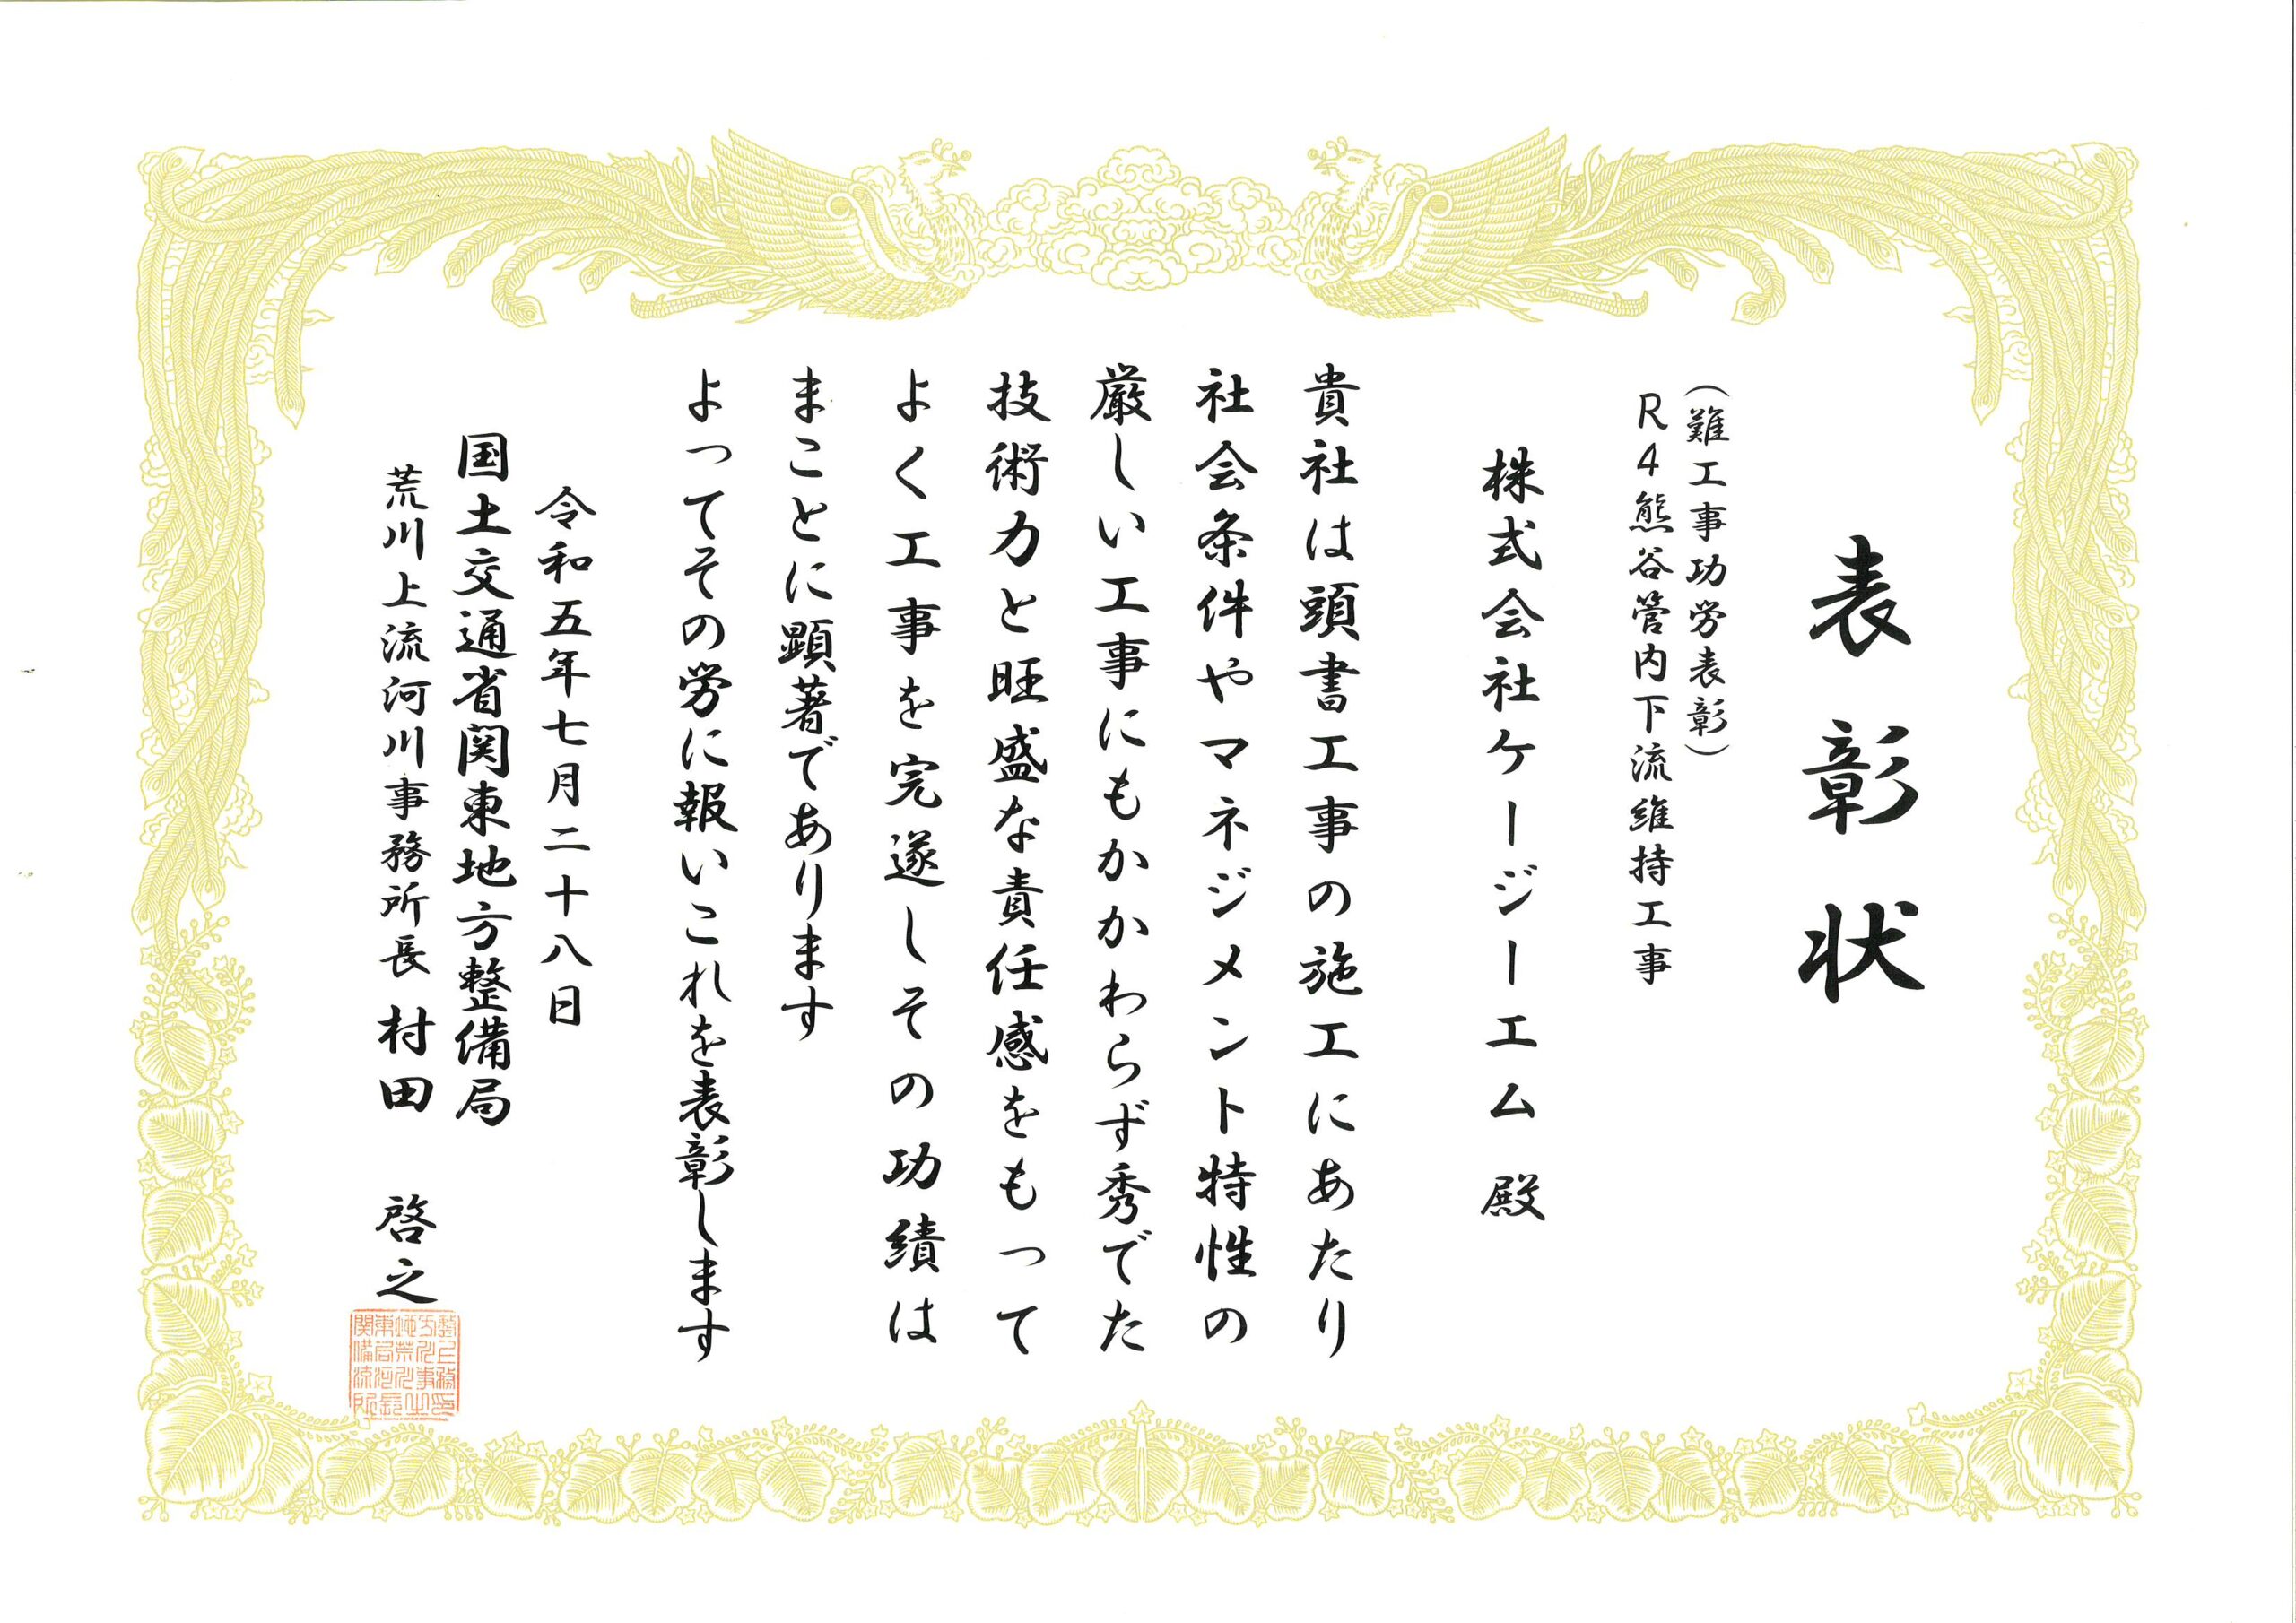 表彰状
(難工事功労表彰)
R4熊谷管内下流維持工事
株式会社ケージーエム 殿
貴社は頭書工事の施工にあたり
社会条件やマネジメント特性の
厳しい工事にもかかわらず秀でた
技術力と旺盛な責任感をもって
よく工事を完遂しその功績は
まことに顕著であります
よってその労に報いこれを表彰します
令和五年七月二十八日
国土交通省関東地方整備局
荒川上流河川事務所長 村田 啓之